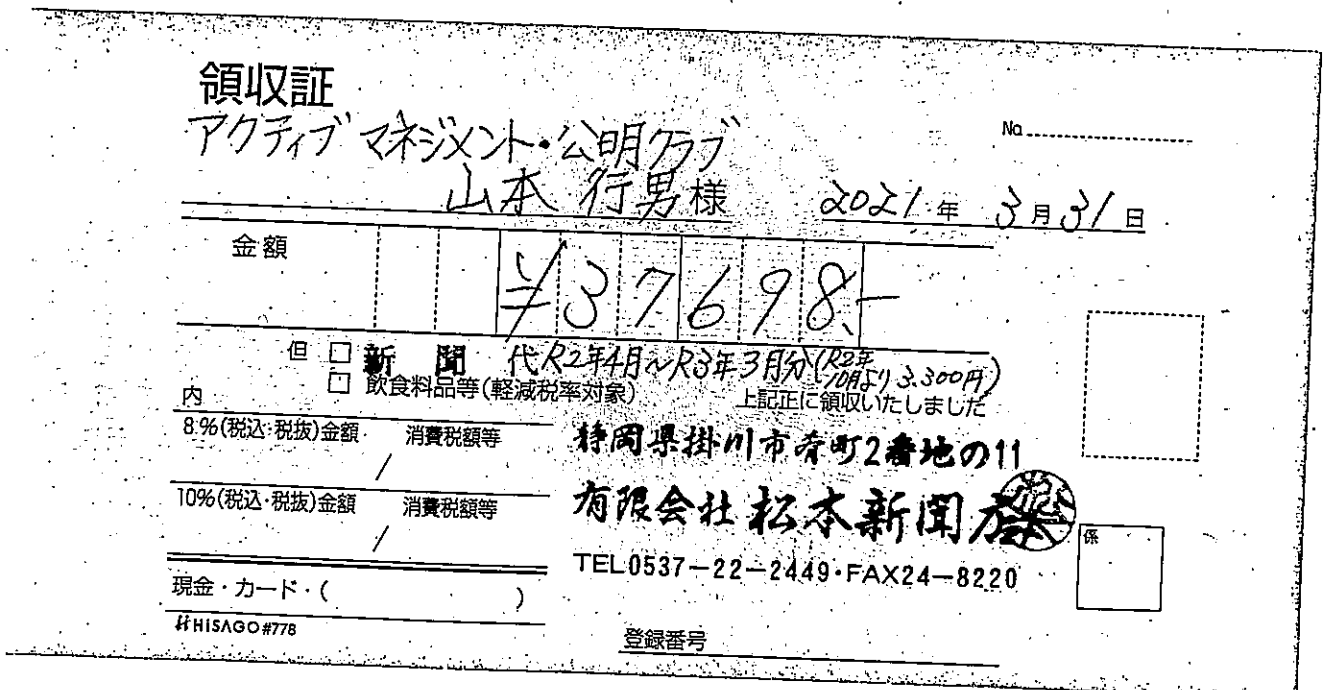 領収証
No.
アクティブ マネジメント・公明クラブ
山本 行男 様 2021年 3月31日
金額 ¥37698.-
但 □ 新聞 代 R2年4月~R3年3月分(R2年10月より3.300円)
□ 飲食料品等(軽減税率対象) 上記正に領収いたしました
内
8%(税込・税抜)金額 消費税額等
/
10%(税込・税抜)金額 消費税額等
/
静岡県掛川市肴町2番地の11
有限会社 松本新聞店
TEL0537-22-2449・FAX24-8220
係
現金・カード・( )
HISAGO #778
登録番号